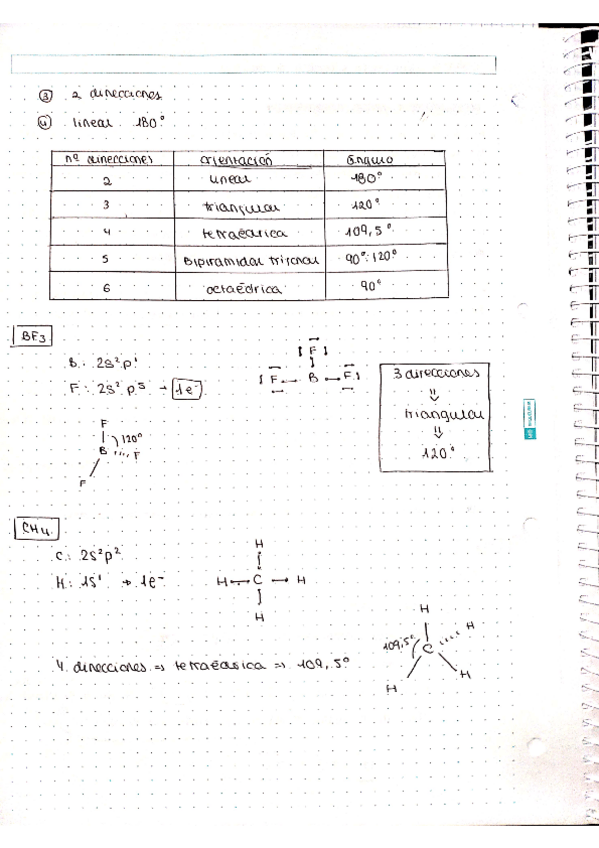 ③ 2 direcciones
④ lineal 180°
nº direcciones orientación ángulo
2 lineal 180°
3 triangular 120°
4 tetraédrica 109,5°
5 Bipiramidal trigonal 90°:120°
6 octaédrica 90°
BF3
B: 2s²p¹
F: 2s²p⁵ → 1e⁻
F
F B F
3 direcciones
⇓
triangular
⇓
120°
F
120°
B F
F
CH4
C: 2s²p²
H: 1s¹ → 1e⁻
H
H C H
H
4 direcciones ⇒ tetraédrica ⇒ 109,5°
H
109,5° H
C
H H